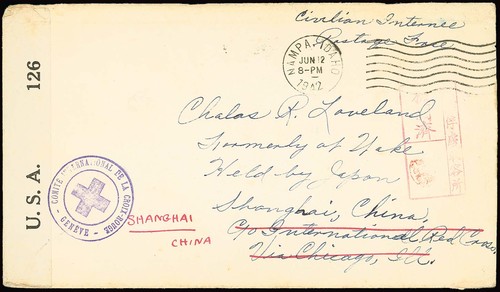 Civilian Internee
Postage Free
NAMPA, IDAHO
JUN 12
8-PM
1942
U. S. A. 126
Chalas R. Loveland
Formerly of Wake
Held by Japan
Shanghai, China.
c/o International Red Cross,
Via Chicago, Ill.
COMITÉ INTERNATIONAL DE LA CROIX-ROUGE
- GENÈVE -
SHANGHAI
CHINA